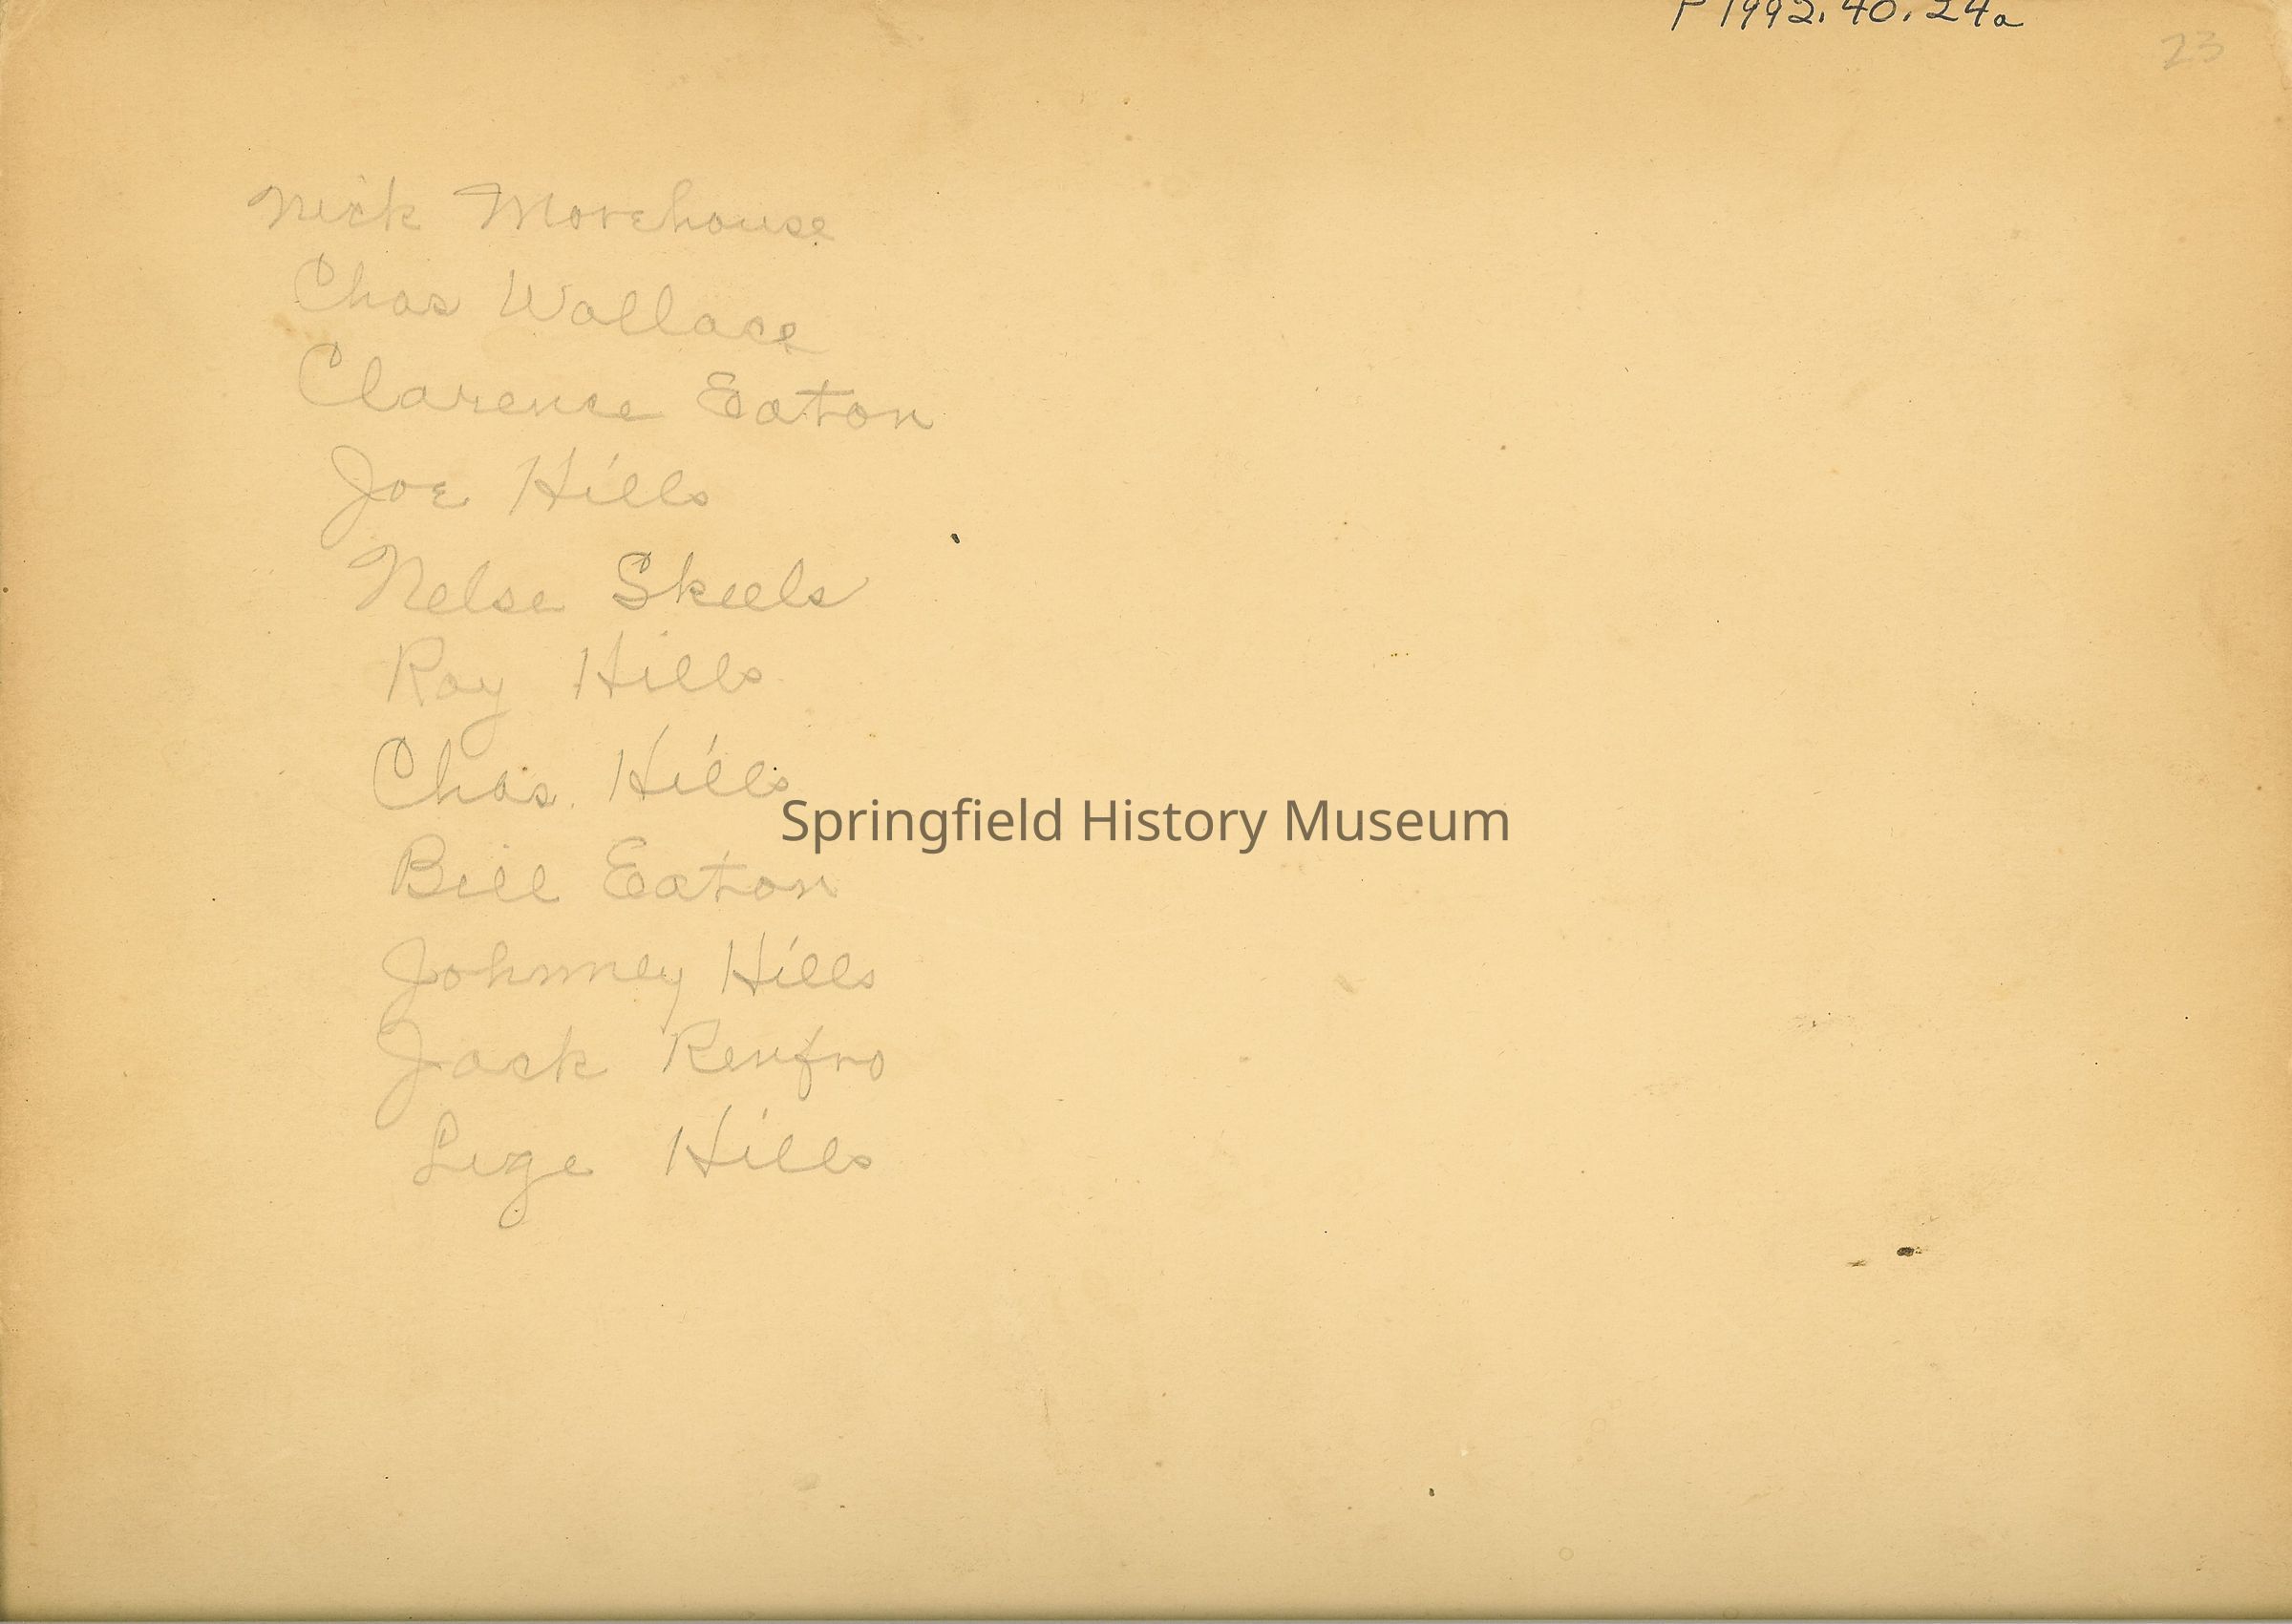 P1992.40.24a
23
Nick Morehouse
Chas Wallace
Clarence Eaton
Joe Hills
Nelse Skeels
Roy Hills
Chas. Hills
Springfield History Museum
Bill Eaton
Johnney Hills
Jack Renfro
Lige Hills